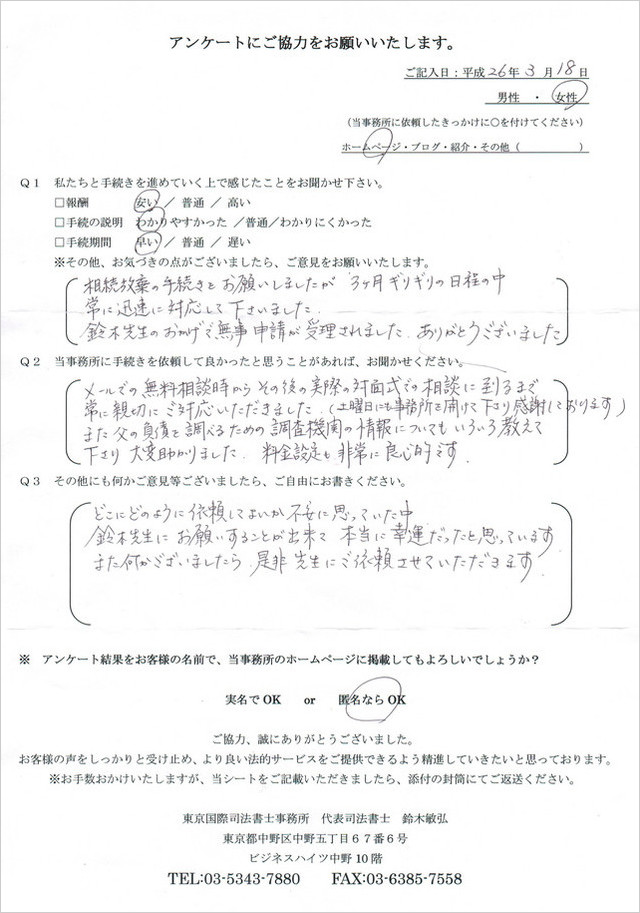 アンケートにご協力をお願いいたします。
ご記入日：平成26年3月18日
男性 ・ 女性
（当事務所に依頼したきっかけに○を付けてください）
ホームページ・ブログ・紹介・その他（　　　　　）
Ｑ１　私たちと手続きを進めていく上で感じたことをお聞かせ下さい。
□報酬　安い / 普通 / 高い
□手続の説明　わかりやすかった / 普通/わかりにくかった
□手続期間　早い / 普通 / 遅い
※その他、お気づきの点がございましたら、ご意見をお願いいたします。
相続放棄の手続きをお願いしましたが 3ヶ月ギリギリの日程の中
常に迅速に対応して下さいました.
鈴木先生のおかげで無事申請が受理されました. ありがとうございました
Ｑ２　当事務所に手続きを依頼して良かったと思うことがあれば、お聞かせください。
メールでの無料相談時からその後の実際の対面式での相談に到るまで
常に親切にご対応いただきました.（土曜日にも事務所を開けて下さり感謝しております）
また父の負債を調べるための調査機関の情報についてもいろいろ教えて
下さり 大変助かりました. 料金設定も非常に良心的です.
Ｑ３　その他にも何かご意見等ございましたら、ご自由にお書きください。
どこにどのように依頼してよいか不安に思っていた中
鈴木先生にお願いすることが出来て 本当に幸運だったと思っています
また何かございましたら 是非先生にご依頼させていただきます.
※　アンケート結果をお客様の名前で、当事務所のホームページに掲載してもよろしいでしょうか？
実名でOK　or　匿名ならOK
ご協力、誠にありがとうございました。
お客様の声をしっかりと受け止め、より良い法的サービスをご提供できるよう精進していきたいと思っております。
※お手数おかけいたしますが、当シートをご記載いただきましたら、添付の封筒にてご返送ください。
東京国際司法書士事務所　代表司法書士　鈴木敏弘
東京都中野区中野五丁目６７番６号
ビジネスハイツ中野10階
TEL:03-5343-7880　FAX:03-6385-7558